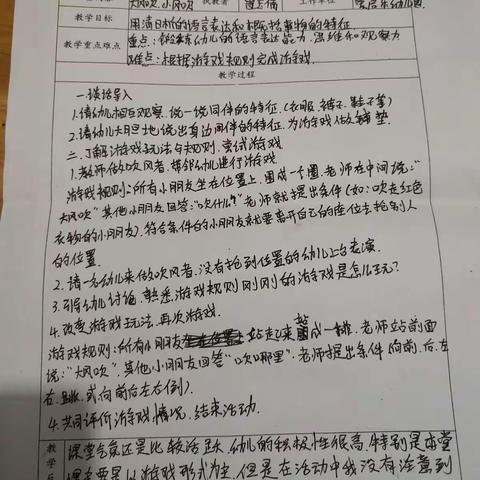 大风吹、小风吹 执教者 工作单位
教学目标 用清晰的语言表达和概括事物的特征.
教学重点难点 重点:锻炼幼儿的语言表达能力、思维和观察力
难点:根据游戏规则完成游戏.
教学过程
一.谈话导入
1.请幼儿相互观察.说一说同伴的特征.(衣服、裤子、鞋子等)
2.请幼儿大胆地说出身边同伴的特征.为游戏做铺垫.
二.了解游戏玩法与规则.尝试游戏
1.教师做吹风者.带领幼儿进行游戏
游戏规则:所有小朋友坐在位置上.围成一个圈.老师在中间说:“
大风吹”其他小朋友回答:“吹什么?”老师就提出条件(如:吹走红色
衣物的小朋友).符合条件的小朋友就要离开自己的座位去抢别人
的位置.
2.请一名幼儿来做吹风者.没有抢到位置的幼儿上台表演.
3.引导幼儿讨论.熟悉游戏规则刚刚的游戏是怎么玩?
4.改变游戏玩法.再次游戏.
游戏规则:所有小朋友站起来站成一排.老师站前面
说:“大风吹”.其他小朋友回答“吹哪里”.老师提出条件(向前.后.左
右.跳.或向前后左右倒).
4.共同评价游戏情况.结束活动.
教 课堂气氛还是比较活跃.幼儿的积极性很高.特别是本堂
学 课主要是以游戏形式为主.但是在活动中我没有注意到